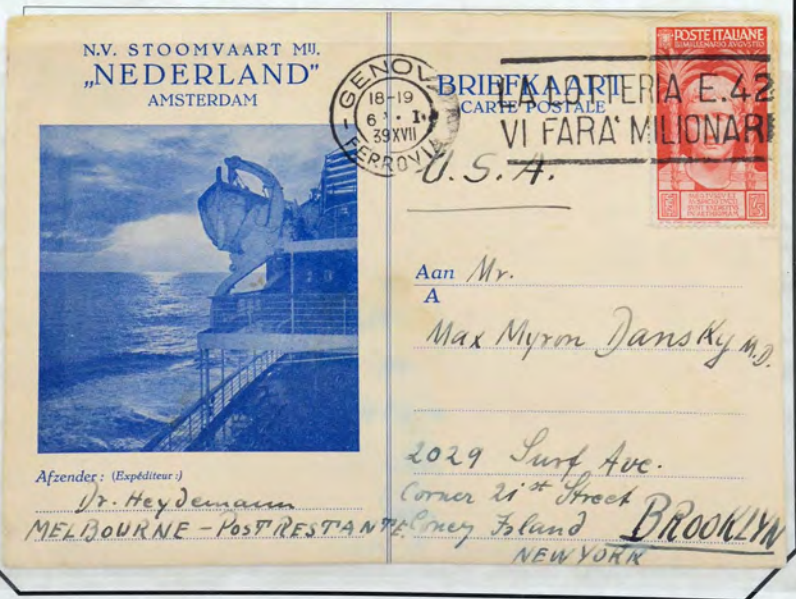 N.V. STOOMVAART MIJ.
„NEDERLAND”
AMSTERDAM
GENOVA
18-19
6 · I
39 XVII
FERROVIA
BRIEFKAART
CARTE POSTALE
LA LOTTERIA E.42
VI FARA' MILIONARI
POSTE ITALIANE
BIMILLENARIO AVGVSTEO
75
U.S.A.
Aan Mr.
A
Max Myron Dansky M.D.
2029 Surf Ave.
Corner 21st Street
Coney Island BROOKLYN
NEW YORK
Afzender: (Expéditeur:)
Dr. Heydemann
MELBOURNE - POST RESTANTE.